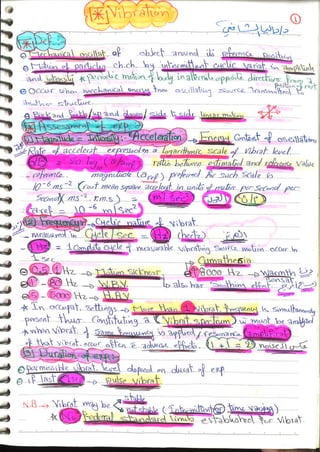 ① 
[*] Vibration
د/داليا الشافعي
* Def
① Mechanical oscillat. of object around its reference position
② Motion of particles ch.ch. by intermittent cyclic variat. in amplitude
and intensity * periodic motion of body in alternate opposite direction from a position of rest
③ Occur when mechanical energy from oscillating source transmitted to
another structure
④ Back and forth / up and down / side to side linear motion
* Assessment of exp.
① Amplitude = Intensity = Acceleration → Energy Content of oscillations
Rate of accelerat. expressed on a logarithmic scale of vibrat. level
ratio between estimated and reference value
reference magnitude (a ref) preferred for such scale is
10⁻⁶ ms⁻² (root mean square accelerat. in units of meter per second per
second (ms⁻² r.m.s.) = m/sec²
a ref = 10⁻⁶ m/sec²
② Frequency → Cyclic nature of vibrat.
measured in Cycle/sec = Hz (hertz)
Hz = 1 Complete Cycle of measurable vibrating source motion occur in
1 sec
Hz → Motion sickness
Hz → W.B.V
Hz → H.A.V
8000 Hz → Warmth sensat.
also has Soothing effect
* In occupat. settings → More than 1 vibrat. frequency is simultaneously
present thus Constituting a Vibrat spectrum & must be analyzed
* when vibrat. of same frequency is applied / resonance Amplificat.
of that vibrat. occur often & adverse effects. (1+1=2) noise
③ Duration of exp.
① permissible vibrat. level depend on durat. of exp.
② if last 1 sec → pulse vibrat.
N.B → Vibrat may be stable
not stable (Intermittent or time varying)
* No Federal standard limits established for vibrat.